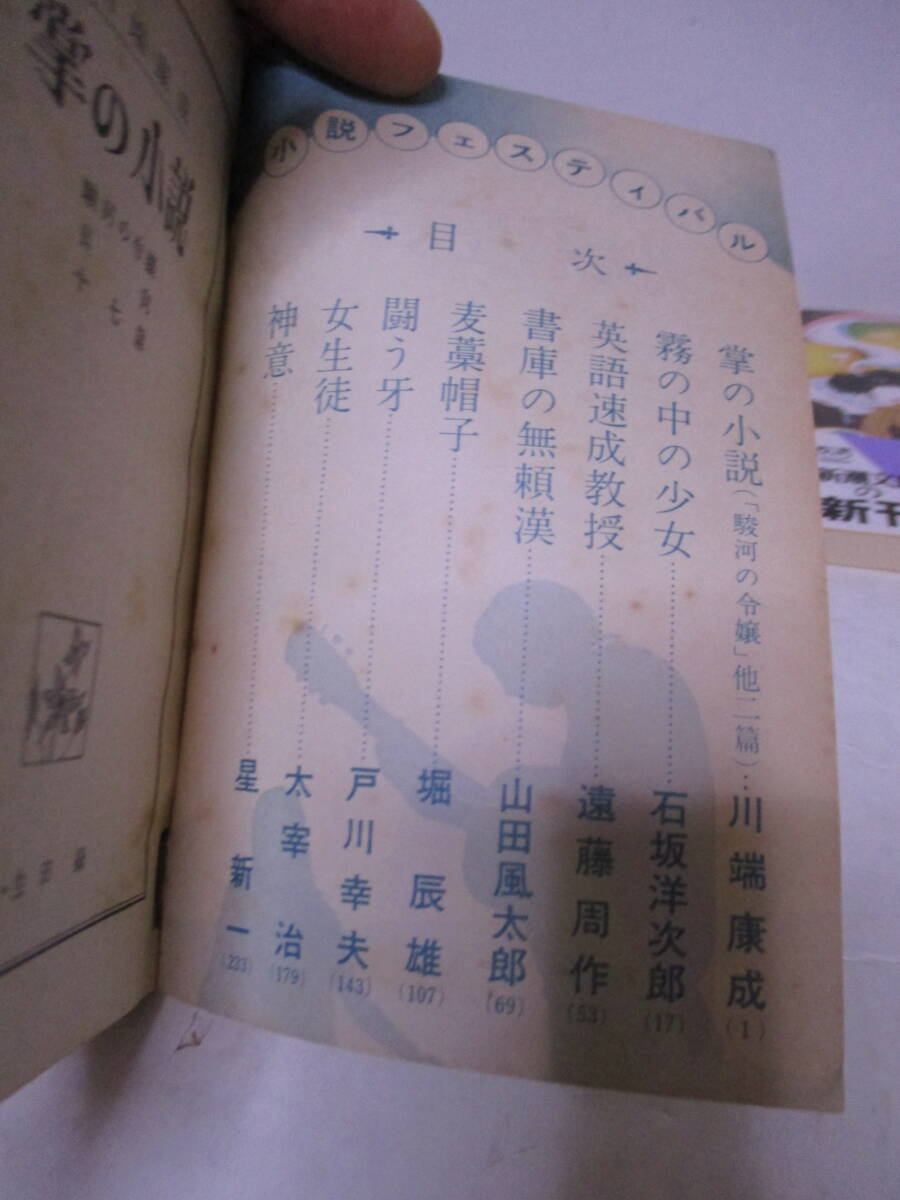 小説フェスティバル
目次
掌の小説(「駿河の令嬢」他二篇)…川端康成(1)
霧の中の少女……石坂洋次郎(17)
英語速成教授……遠藤周作(53)
書庫の無頼漢……山田風太郎(69)
麦藁帽子……堀辰雄(107)
闘う牙……戸川幸夫(143)
女生徒……太宰治(179)
神意……星新一(233)
掌の小説
新潮文
の
新刊